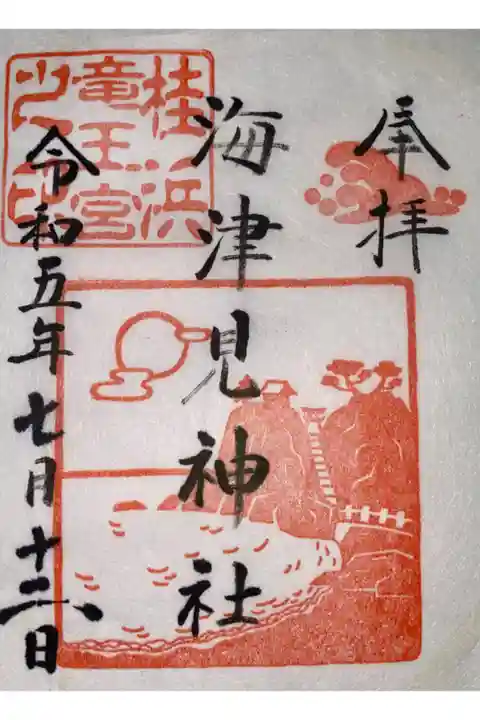 奉拝
海津見神社
桂浜
竜王宮
之印
令和五年七月十二日